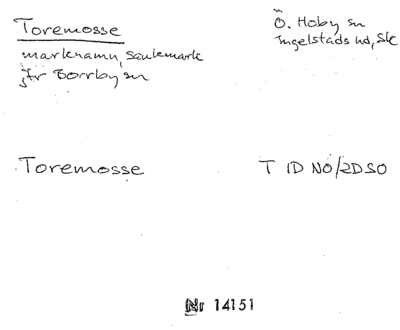 Toremosse
marknamn, sankmark
jfr Borrby sn
Ö. Hoby sn
Ingelstads hd, Sk
Toremosse
T 1D NO/2D SO
Nr 14151